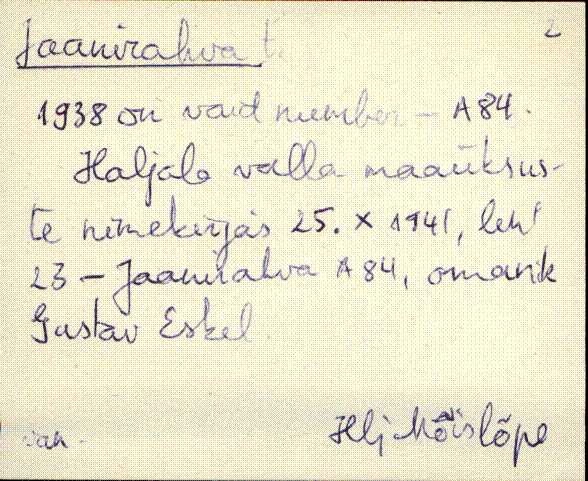 2
Jaanirahva t.
1938 on vaid number – A 84.
Haljala valla maaüksus-
te nimekirjas 25. X 1941, leht
23 – Jaanirahva A 84, omanik
Gustav Eskel
van. Hlj Mõislõpe